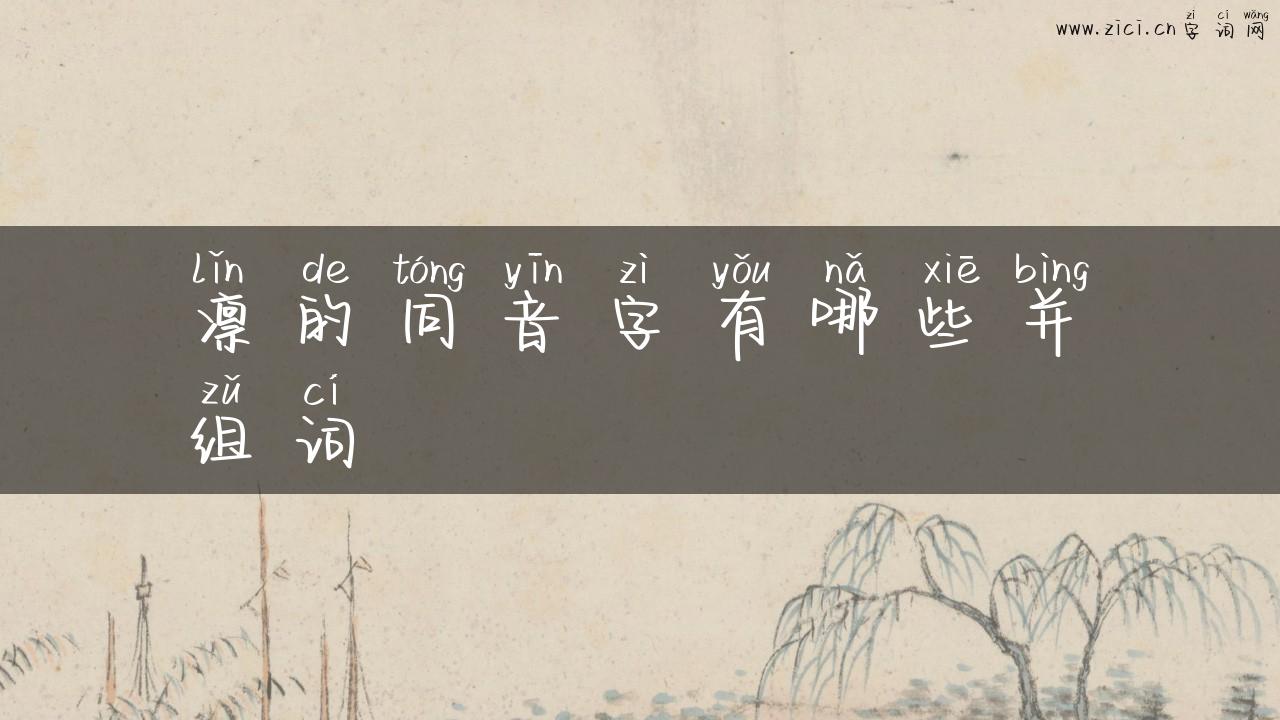 zì cí wǎng
www.zici.cn 字 词 网
lǐn de tóng yīn zì yǒu nǎ xiē bìng
凛 的 同 音 字 有 哪 些 并
zǔ cí
组 词